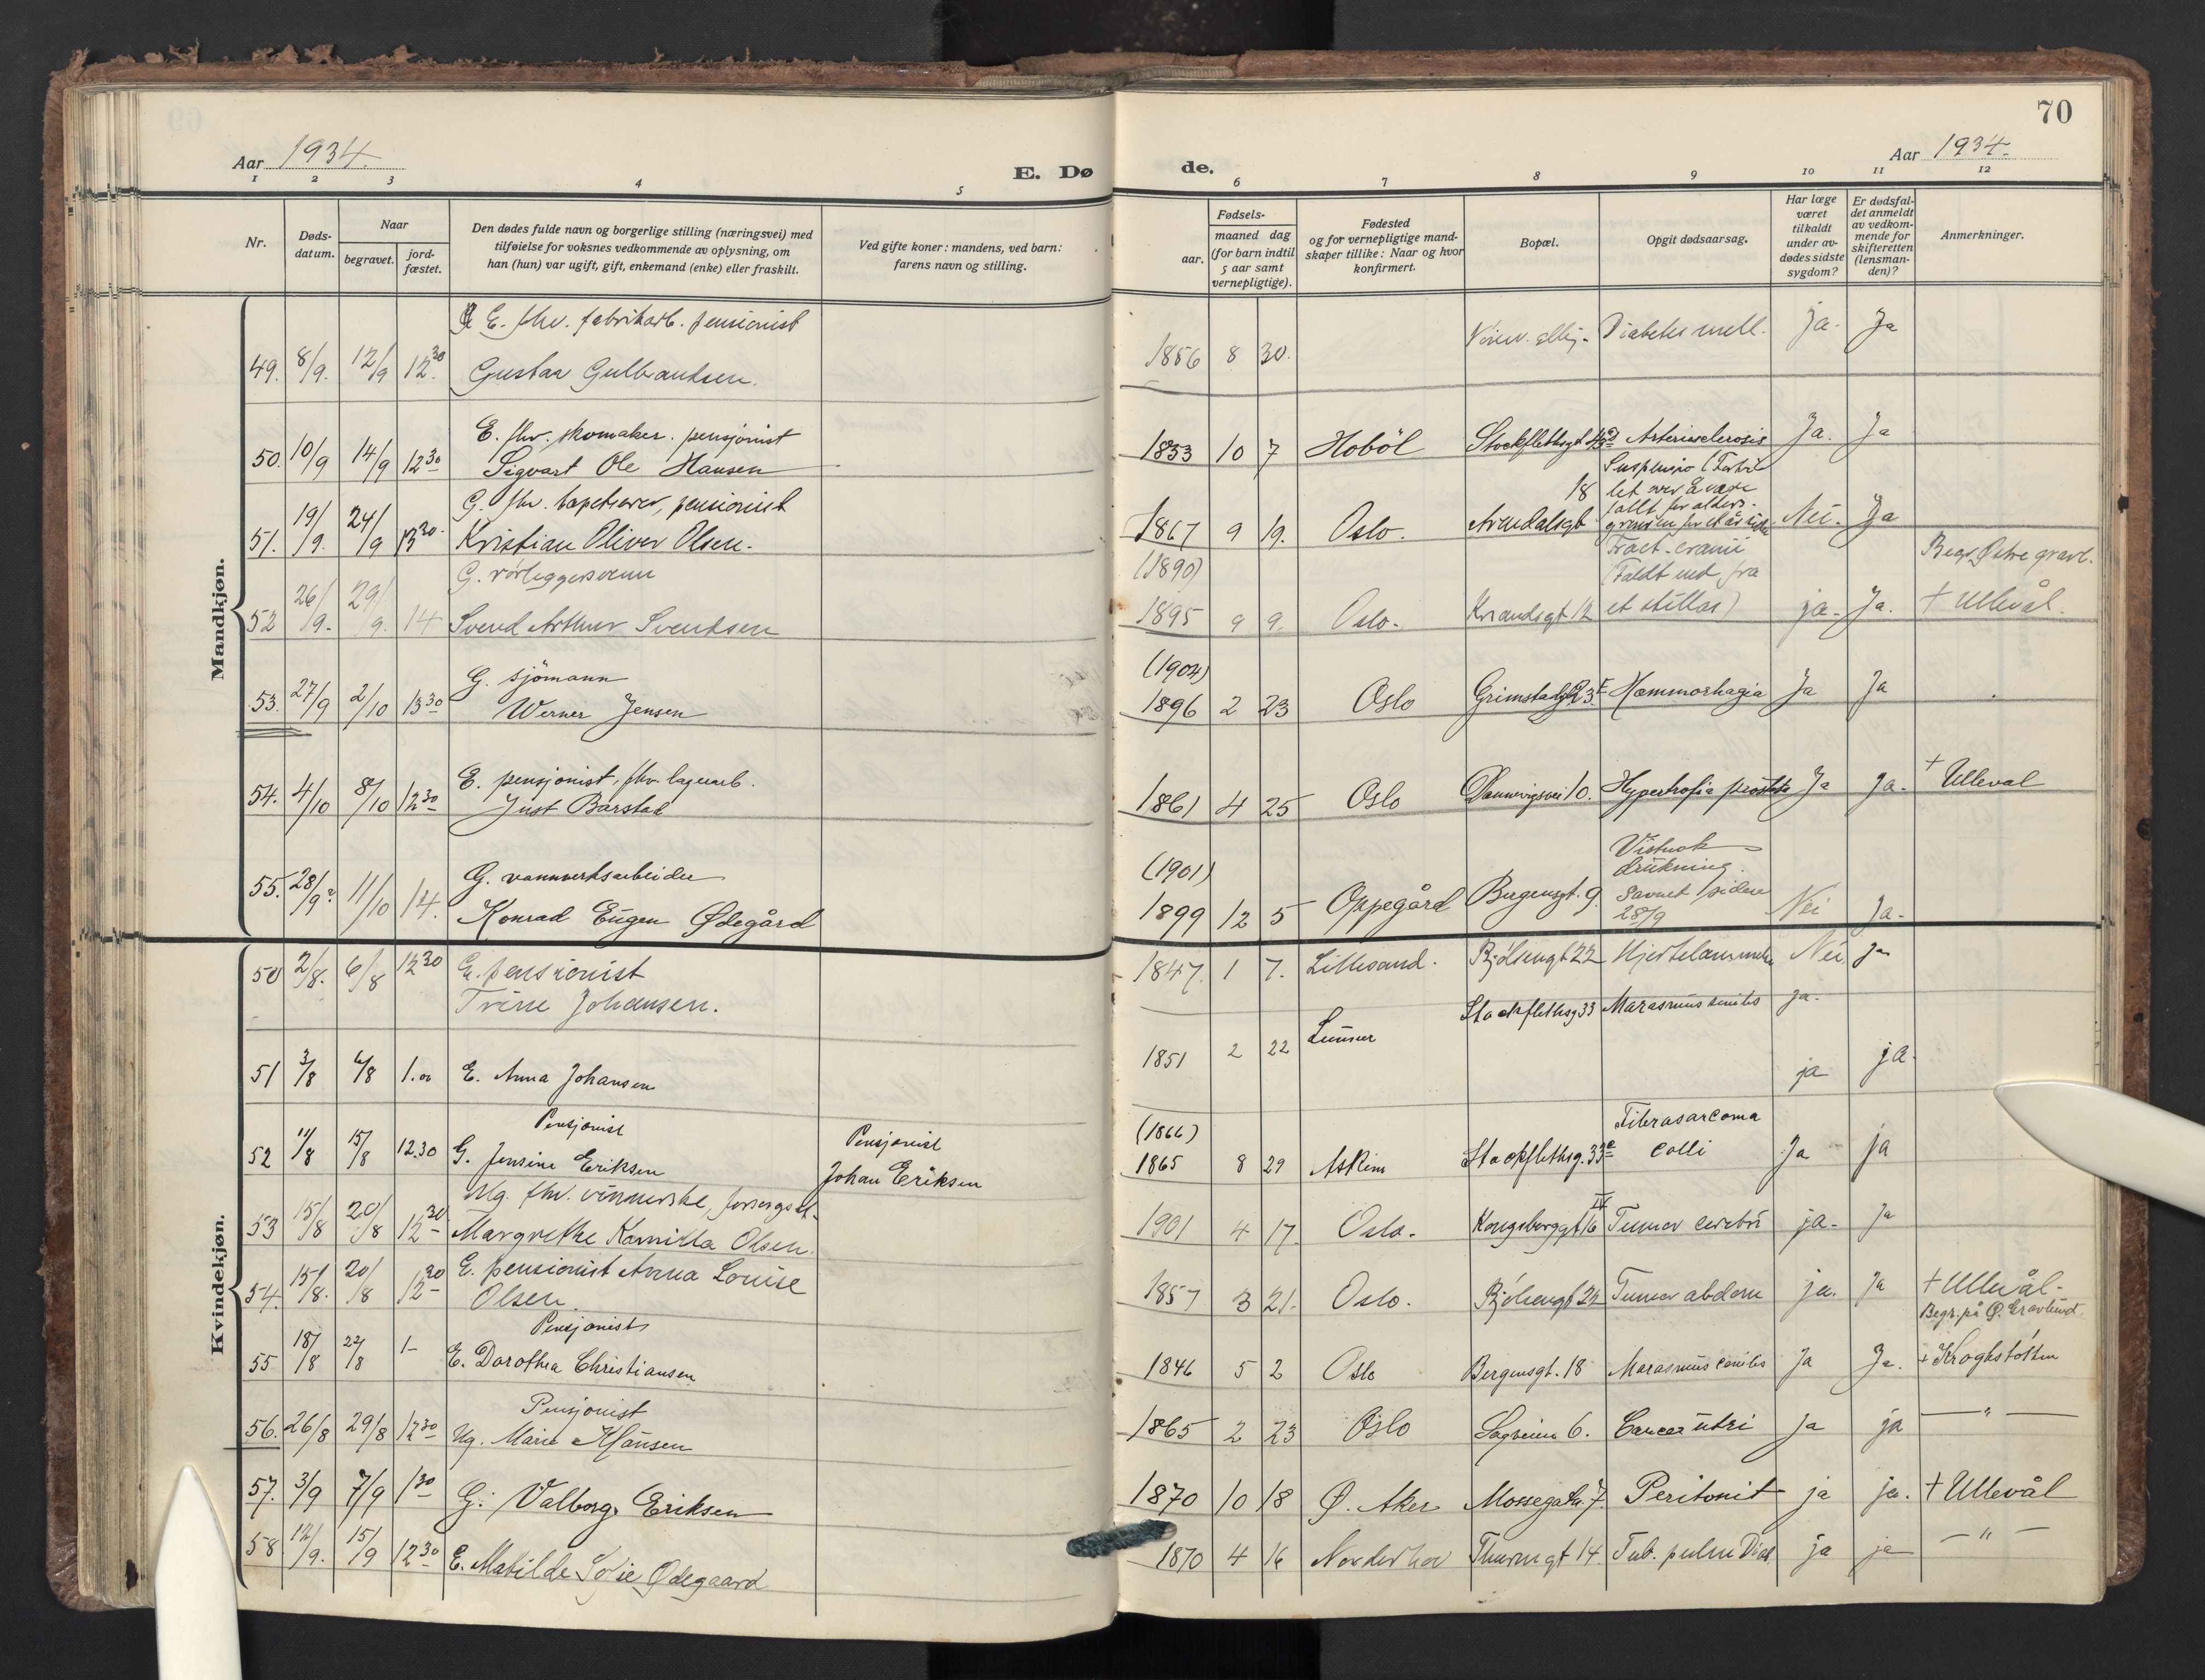 70
Aar 1934.
E. Dø
de.
Aar 1934.
1 2 3 4 5 6 7 8 9 10 11 12
Nr.
Døds-
datum.
Naar
begravet.
jord-
fæstet.
Den dødes fulde navn og borgerlige stilling (næringsvei) med
tilføielse for voksnes vedkommende av oplysning, om
han (hun) var ugift, gift, enkemand (enke) eller fraskilt.
Ved gifte koner: mandens, ved barn:
farens navn og stilling.
Fødsels-
aar.
maaned dag
(for barn indtil
5 aar samt
vernepligtige).
Fødested
og for vernepligtige mand-
skaper tillike: Naar og hvor
konfirmert.
Bopæl.
Opgit dødsaarsag.
Har læge
været
tilkaldt
under av-
dødes sidste
sygdom?
Er dødsfal-
det anmeldt
av vedkom-
mende for
skifteretten
(lensman-
den)?
Anmerkninger.
Mandkjøn.
E. fhv. fabrikarb. pensionist
49. 8/9. 12/9 12 30 Gustav Gulbrandsen. 1856 8 30. Diabetes mell. ja. Ja
E. fhv. skomaker. pensjonist
50. 10/9 14/9 12 30 Sigvart Ole Hansen 1853 10 7 Hobøl Stockflethsgt. Arteriosclerosis Ja. Ja
G. fhv. tapetserer, pensionist
Suspensio
18
51. 19/9. 24/9 13 30 Kristian Oliver Olsen. 1867 9 19. Oslo. Arendalsgt. Nei. Ja
(1890)
G. rørleggersvenn
Fract. cranii
(Faldt ned fra
Begr. Østre gravl.
52 26/9. 29/9. 14 Svend Arthur Svendsen 1895 9 9. Oslo. Krsandsgt 12 et stillas) ja. Ja. + Ullevål.
(1904)
G. sjømann
53. 27/9 2/10 13 30 Werner Jensen 1896 2 23 Oslo Hæmmorhagia Ja Ja
E. pensjonist, fhv. lagerarb.
54. 4/10 8/10 12 30 Just Barstad 1861 4 25 Oslo Dannevigsvei 10. Hypertrofia prostata Ja Ja. + Ulleval
(1901)
G. vannverksarbeider
Vistnok
drukning.
Savnet siden
28/9
55. 28/9? 11/10 14. Konrad Eugen Ødegård 1899 12 5 Oppegård Bergensgt. 9. Nei Ja.
Kvindekjøn.
50 2/8. 6/8 12 30 E. pensionist
Trine Johansen. 1847 1 7. Lillesand. Bjølsengt 22 Nei ja
51 3/8 6/8 1.00 E. Anna Johansen 1851 2 22 Lunner Stockflethsg 33 Marasmus senilis ja. ja ja.
Pensjonist
(1866)
Fibrasarcoma
52 11/8 15/8 12.30 G. Jensine Eriksen Pensjonist
Johan Eriksen 1865 8 29 Askim Stockflethsg. 33 colli Ja ja
Ug. fhv.
53 15/8 20/8 12 30 Margrethe Kamilla Olsen. 1901 4 17. Oslo. Kongsberggt 16 IV Tumor cerebri ja. Ja
54. 15/8. 20/8 12 30 E. pensionist Anna Louise
Olsen. 1857 3 21. Oslo. Bjølsengt 22 Tumor abdom ja. Ja + Ullevål.
Begr. på Ø. Gravlund
Pensjonist
55 18/8 22/8 1- E. Dorothea Christiansen 1846 5 2 Oslo Bergensgt. 18 Marasmus senilis Ja Ja. + Kroghstøtten
Pensjonist
56. 26/8 29/8 12 30 Ug. Marie Hansen 1865 2 23 Oslo Sagveien 6. Cancer uteri Ja ja — " —
57. 3/9 7/9 1 30 G. Valborg Eriksen 1870 10 18 Ø. Aker Mossegata 7. Peritonit ja ja. + Ullevål
58 12/9. 15/9 12 30 E. Matilde Sofie Ødegaard 1870 4 16 Norderhov Thurmgt 14 Tub. pulm ja ja — " —